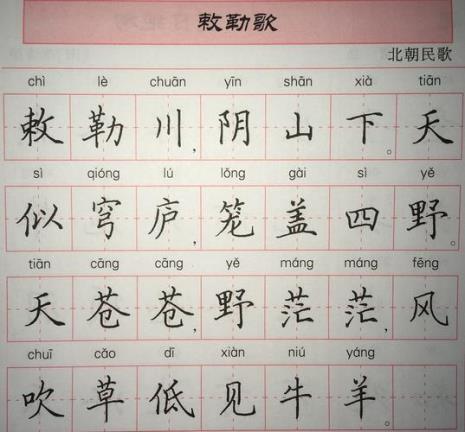 敕勒歌
北朝民歌
chì lè chuān yīn shān xià tiān
敕勒川,阴山下。天
sì qióng lú lǒng gài sì yě
似穹庐,笼盖四野。
tiān cāng cāng yě máng máng fēng
天苍苍,野茫茫,风
chuī cǎo dī xiàn niú yáng
吹草低见牛羊。